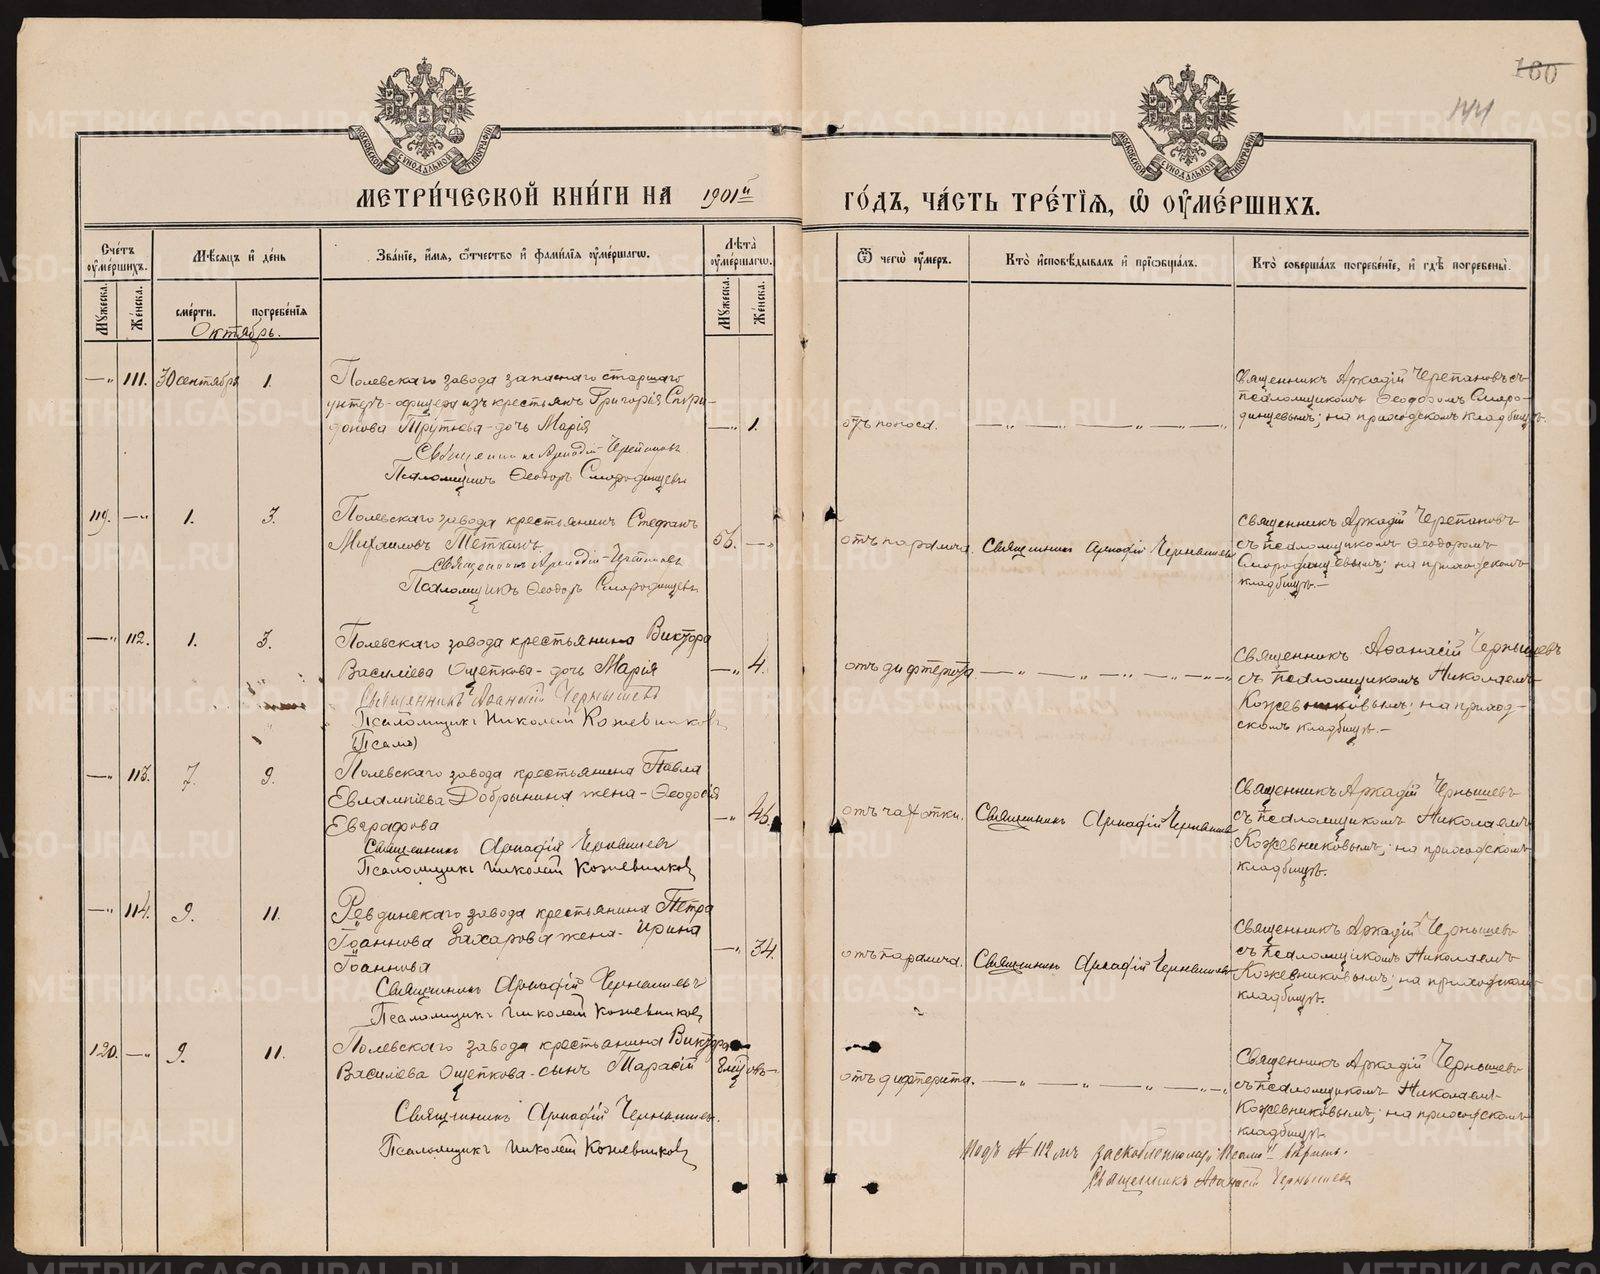 100
144
МЕТРИ́ЧЕСКОЙ КНИ́ГИ НА 1901й ГО́ДЪ, ЧА́СТЬ ТРЕ́ТІѦ, Ѡ ОУМЕ́РШИХЪ.
Сче́тъ оумершихъ.
Мѣсяцъ и де́нь
Зва́ніе, и́мя, о́тчество и фами́лія оуме́ршагѡ.
Лѣта̀ оуме́ршагѡ.
Ѿ чегѡ̀ оу́меръ.
Кто̀ исповѣ́дывалъ и пріѡбща́лъ.
Кто̀ соверша́лъ погребе́ніе, и гдѣ̀ погребены̀.
Мꙋжеска.
Же́нска.
сме́рти.
погребе́нія
Мꙋжеска.
Же́нска.
Октябрь.
—„ 111. 30 сентября 1.
Полевскаго завода запаснаго старшаго
унтеръ-офицера изъ крестьянъ Григорія Спири-
донова Трутнева-дочь Марія
Священникъ Аркадій Черепановъ
Псаломщикъ Ѳеодоръ Смородинцевъ
—„ 1.
отъ поноса.
—„—„—„—„—
Священникъ Аркадій Черепановъ съ
псаломщикомъ Ѳеодоромъ Сморо-
динцевымъ; на приходскомъ кладбищѣ.
119. —„ 1. 3.
Полевскаго завода крестьянинъ Стефанъ
Михаиловъ Теткинъ.
Священникъ Аркадій Черепановъ
Псаломщикъ Ѳеодоръ Смородинцевъ
56. —„
отъ паралича.
Священникъ Аркадій Чернышевъ
Священникъ Аркадій Черепановъ
съ псаломщикомъ Ѳеодоромъ
Смородинцевымъ; на приходскомъ
кладбищѣ.—
—„ 112. 1. 3.
Полевскаго завода крестьянина Виктора
Василіева Ощепкова-дочь Марія
Священникъ Аѳанасій Чернышевъ
Псаломщикъ Николай Кожевниковъ
(Псало)
—„ 4.
отъ дифтерита.
—„—„—„—„—
Священникъ Аѳанасій Чернышевъ
съ псаломщикомъ Николаемъ
Кожевниковымъ; на приход-
скомъ кладбищѣ.—
—„ 113. 7. 9.
Полевскаго завода крестьянина Павла
Евлампіева Добрынина жена-Ѳеодосія
Евграфова
Священникъ Аркадій Чернышевъ
Псаломщикъ Николай Кожевниковъ
—„ 46.
отъ чахотки.
Священникъ Аркадій Чернышевъ
Священникъ Аркадій Чернышевъ
съ псаломщикомъ Николаемъ
Кожевниковымъ; на приходскомъ
кладбищѣ.
—„ 114. 9. 11.
Ревдинскаго завода крестьянина Петра
Іоаннова Захарова жена-Ирина
Іоаннова
Священникъ Аркадій Чернышевъ
Псаломщикъ Николай Кожевниковъ
—„ 34.
отъ паралича.
Священникъ Аркадій Чернышевъ
Священникъ Аркадій Чернышевъ
съ псаломщикомъ Николаемъ
Кожевниковымъ; на приходскомъ
кладбищѣ.
120. —„ 9. 11.
Полевскаго завода крестьянина Виктора
Василіева Ощепкова-сынъ Тарасій
Священникъ Аркадій Чернышевъ.
Псаломщикъ Николай Кожевниковъ
отъ дифтерита.
—„—„—„—
Священникъ Аркадій Чернышевъ
съ псаломщикомъ Николаемъ
Кожевниковымъ; на приходскомъ
кладбищѣ.
Подъ № 112мъ заскобленному „Псало“ вѣрить.
Священникъ Аѳанасій Чернышевъ